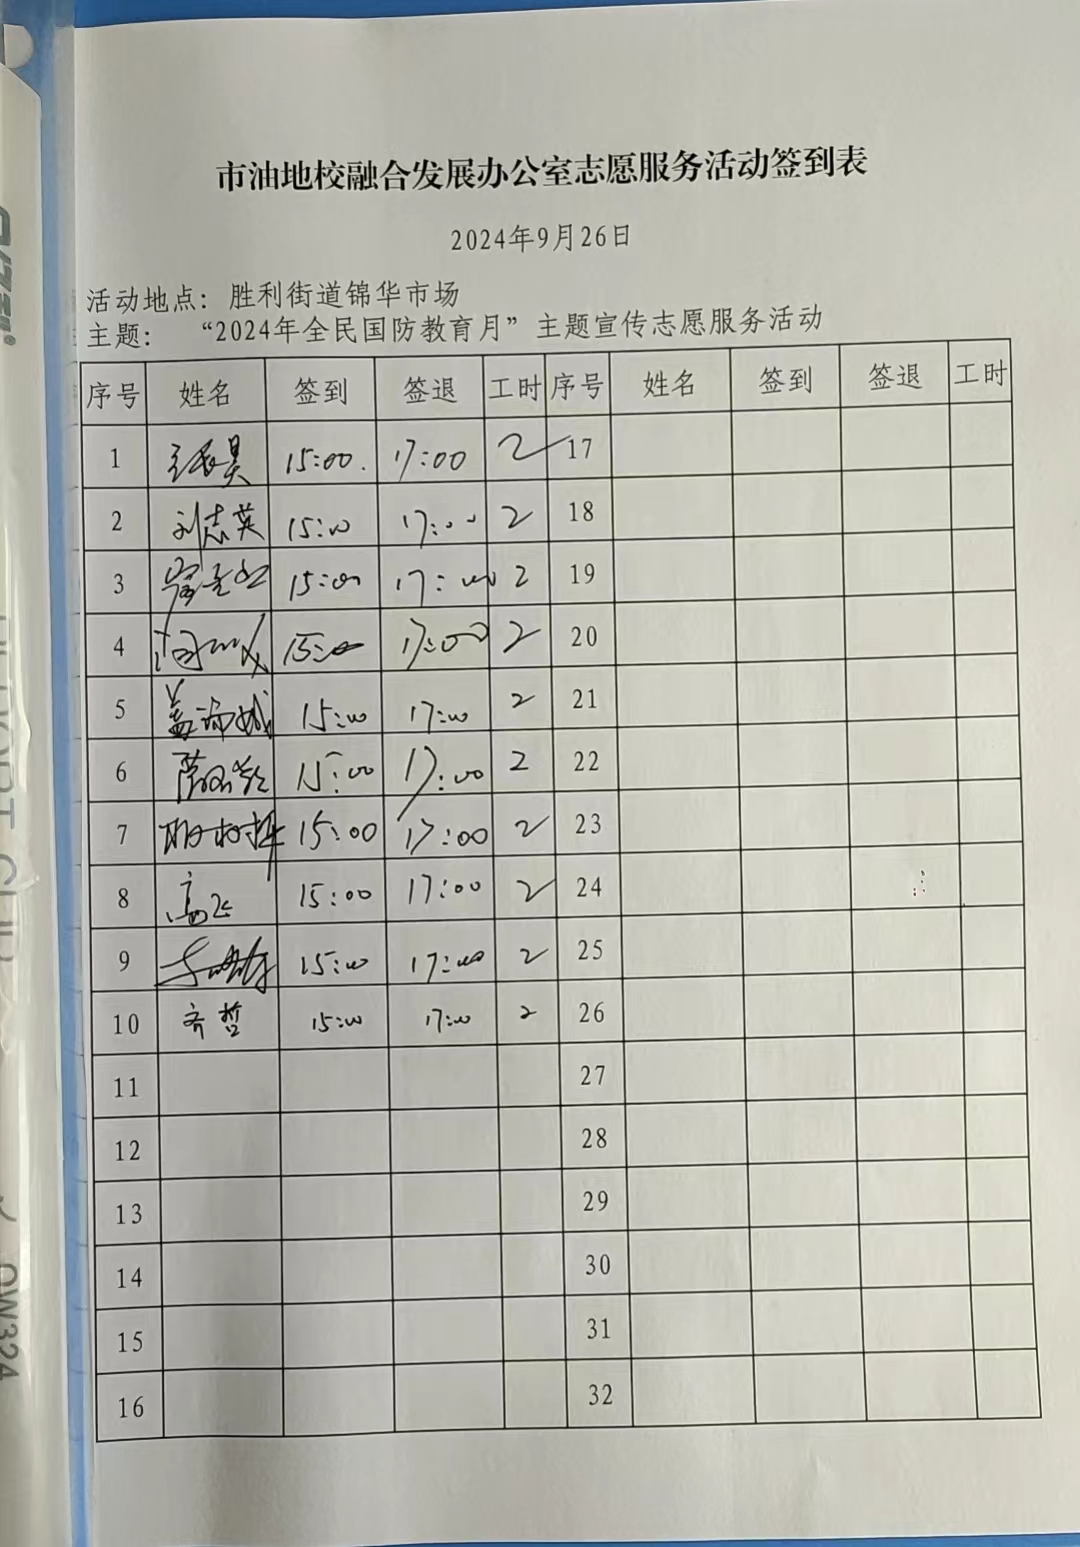 市油地校融合发展办公室志愿服务活动签到表
2024年9月26日
活动地点：胜利街道锦华市场
主题： “2024年全民国防教育月”主题宣传志愿服务活动
序号 姓名 签到 签退 工时 序号 姓名 签到 签退 工时
1 15:00 17:00 2 17
2 刘志英 15:00 17:00 2 18
3 15:00 17:00 2 19
4 15:00 17:00 2 20
5 15:00 17:00 2 21
6 15:00 17:00 2 22
7 15:00 17:00 2 23
8 高飞 15:00 17:00 2 24
9 15:00 17:00 2 25
10 齐哲 15:00 17:00 2 26
11 27
12 28
13 29
14 30
15 31
16 32
QW324